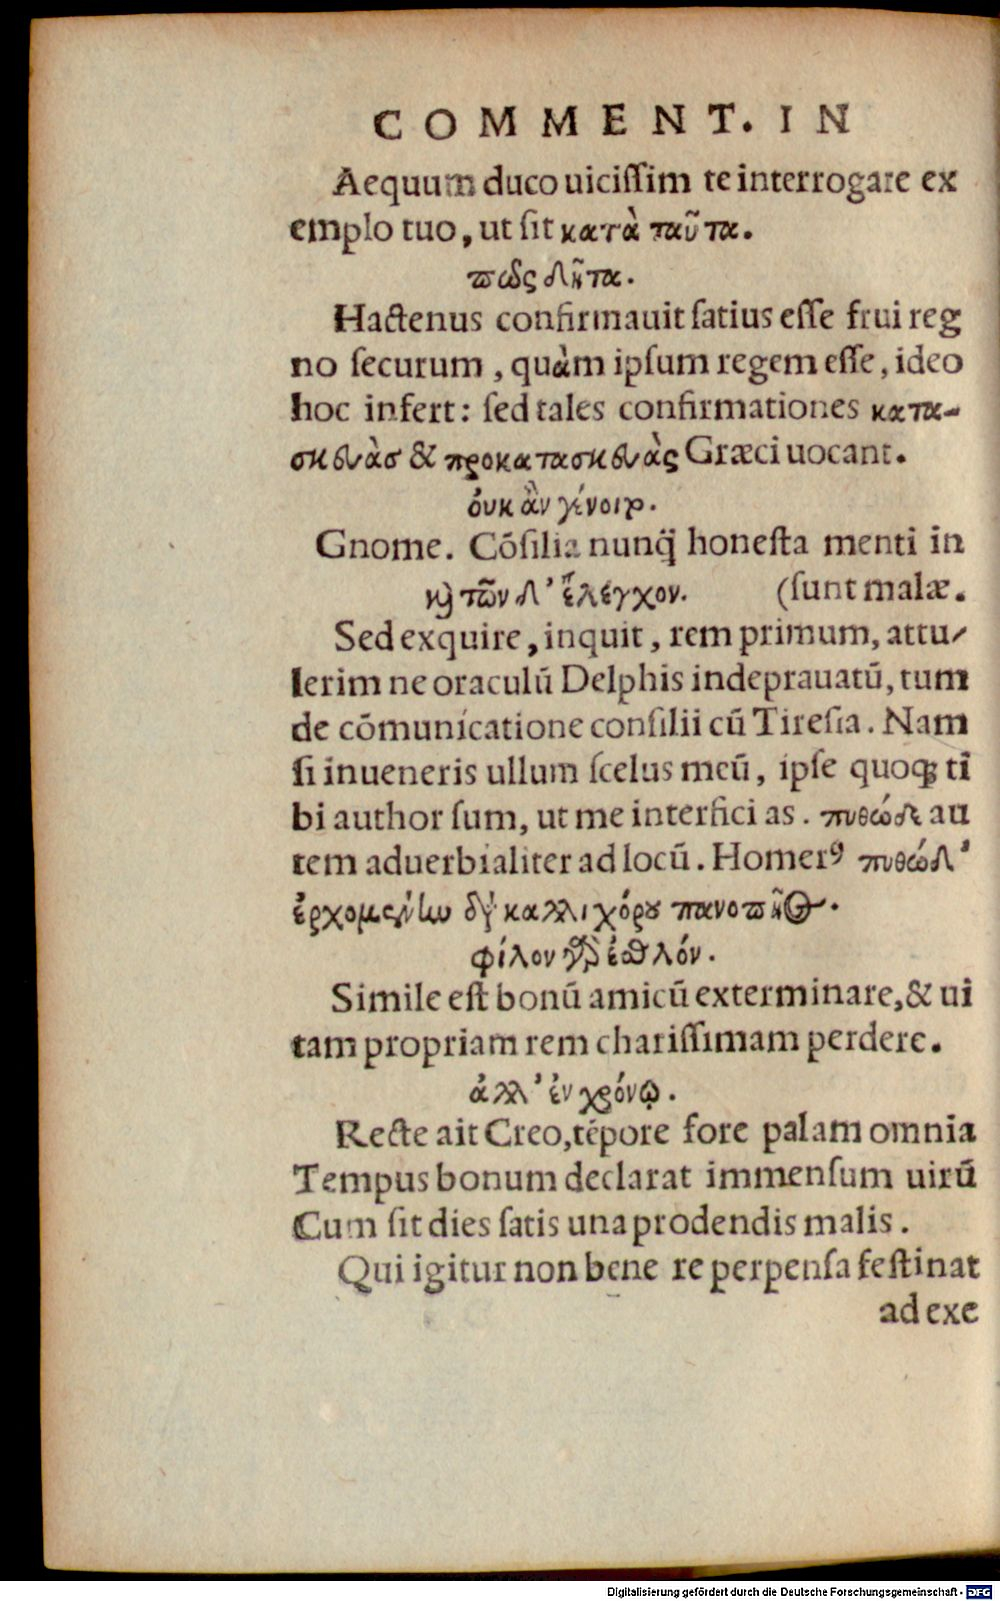 COMMENT. IN
Aequum duco uicissim te interrogare ex
emplo tuo, ut sit κατὰ ταῦτα.
πῶς δῆτα.
Hactenus confirmauit satius esse frui reg
no securum, quàm ipsum regem esse, ideo
hoc infert: sed tales confirmationes κατα-
σκευὰσ & προκατασκευὰς Græci uocant.
ὀυκ ἂν γένοιτο.
Gnome. Cōsilia nunq̃ honesta menti in
κỳ τῶνδ' ἔλεγχον. (sunt malæ.
Sed exquire, inquit, rem primum, attu-
lerim ne oraculū Delphis indeprauatū, tum
de cōmunicatione consilii cū Tiresia. Nam
si inueneris ullum scelus meū, ipse quoq; ti
bi author sum, ut me interfici as. πυθώδε au
tem aduerbialiter ad locū. Homerꝰ πυθώδ'
ἐρχομένην διὰ καλλιχόρου πανοπῆος.
φίλον γὰρ ἐσθλόν.
Simile est bonū amicū exterminare, & ui
tam propriam rem charissimam perdere.
ἀλλ' ἐν χρόνῳ.
Recte ait Creo, tēpore fore palam omnia
Tempus bonum declarat immensum uirū
Cum sit dies satis una prodendis malis.
Qui igitur non bene re perpensa festinat
ad exe
Digitalisierung gefördert durch die Deutsche Forschungsgemeinschaft - DFG